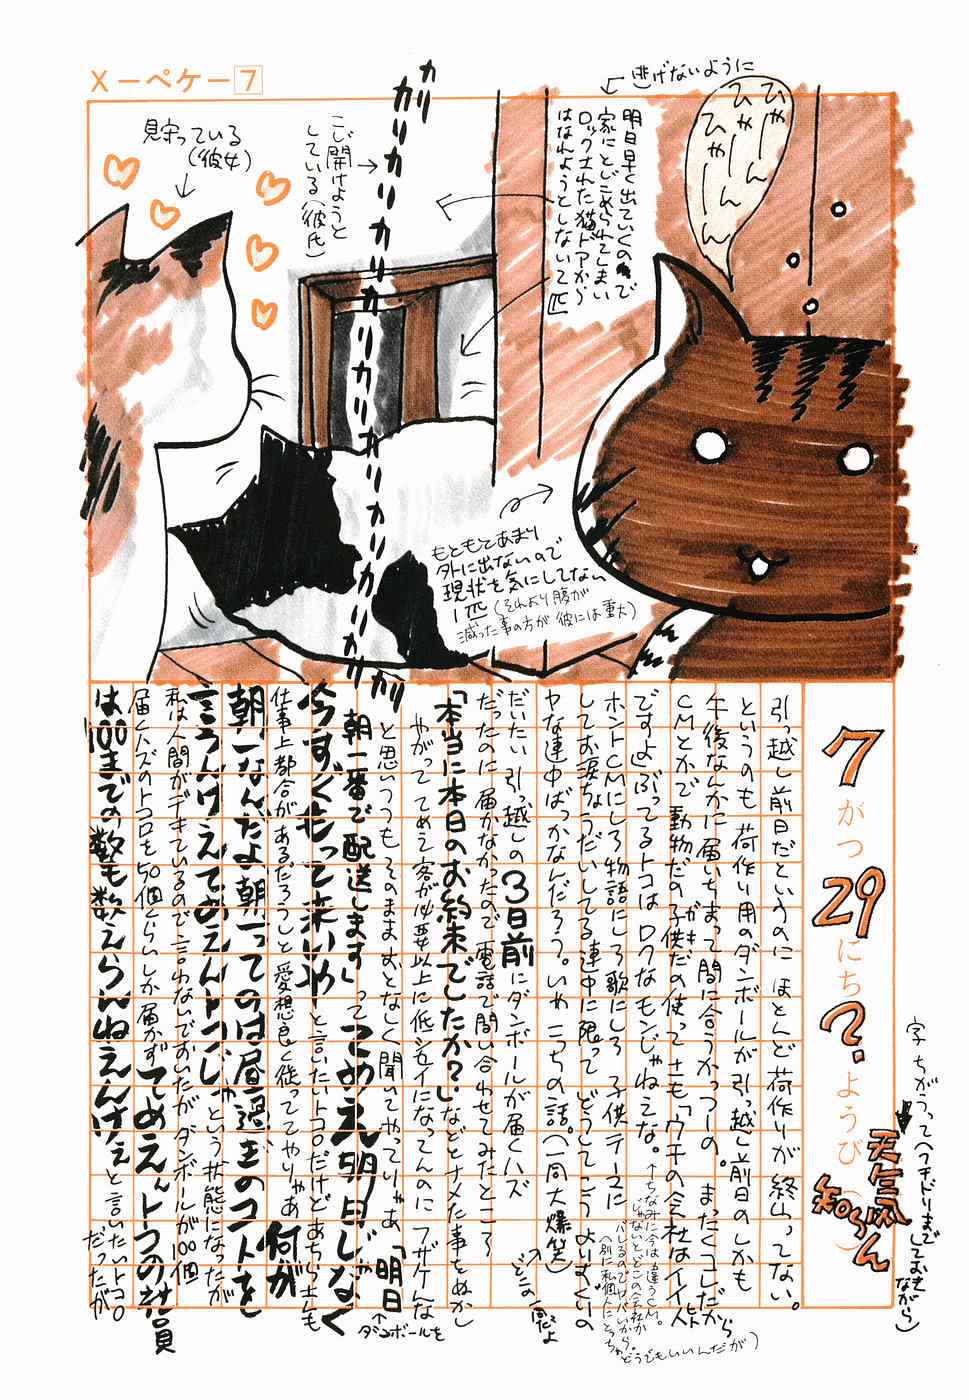 X－ペケー7
カリ
カリカリカリカリカリカリカリカリカリカリカリカリカリ
(逃げないように
ひゃーん
ひゃーん
ひゃーん
明日早く出ていくので
家にとじこめられてしまい
ロックされた猫ドアから
はなれようとしない1匹
こじ開けようと
している(彼氏)
見守っている
(彼女)
もともとあまり
外に出ないので
現状を気にしてない
1匹(それより腹が
減った事の方が彼には重大)
7がつ29にち?ようび
天気
知らん
字ちがうって(フチドリまで
しておき
ながら)
引っ越し前日だというのにほとんど荷作りが終ってない。
というのも荷作り用のダンボールが引っ越し前日のしかも
午後なんかに届いちまって間に合うかっつーの。まったくコレだから
CMとかで動物だの子供だの使ってさも「ウチの会社はイイ人
ガキ
ヒト
ですよ」ぶってるトコはロクなモンじゃねえな。
↑ちなみに今は違うCM。
じゃないとどこの会社か
バレるのでヤバいから。
(別に私個人にとっちゃ
どうでもいいんだが)
ホントCMにしろ物語にしろ歌にしろ子供テーマに
してお涙ちょうだいしてる連中に限ってどうしてこうよいよくの
ヤな連中ばっかなんだろう。いやこっちの話。(一同大爆笑)
↑どこの一同だよ
だいたい引っ越しの3日前にダンボールが届くハズ
だったのに届かなかったので電話で問い合わせてみたところ
「本当に本日のお約束でしたか?」などとナメた事をぬかし
やがっててめえ客が必要以上に低シセイになってんのにフザケんな
と思いつつもそのままおとなしく聞いてやってりゃあ「明日
↑ダンボールを
朝一番で配送します」ってってめえ明日じゃなく
今すぐ持って来いやと言いたいトコロだけどあちらさんも
仕事上都合があるだろうしと愛想良く従ってやりゃあ何が
朝一なんだよ朝一ってのは昼過ぎのコトを
言うんけえてめえんトコじゃという状態になったが
私は人間がデキているので言わないでおいたがダンボールが100個
届くハズのトコロを50個くらいしか届かずてめえんトコの社員
は100までの数も数えらんねえんけぇと言いたいトコロ
だったが